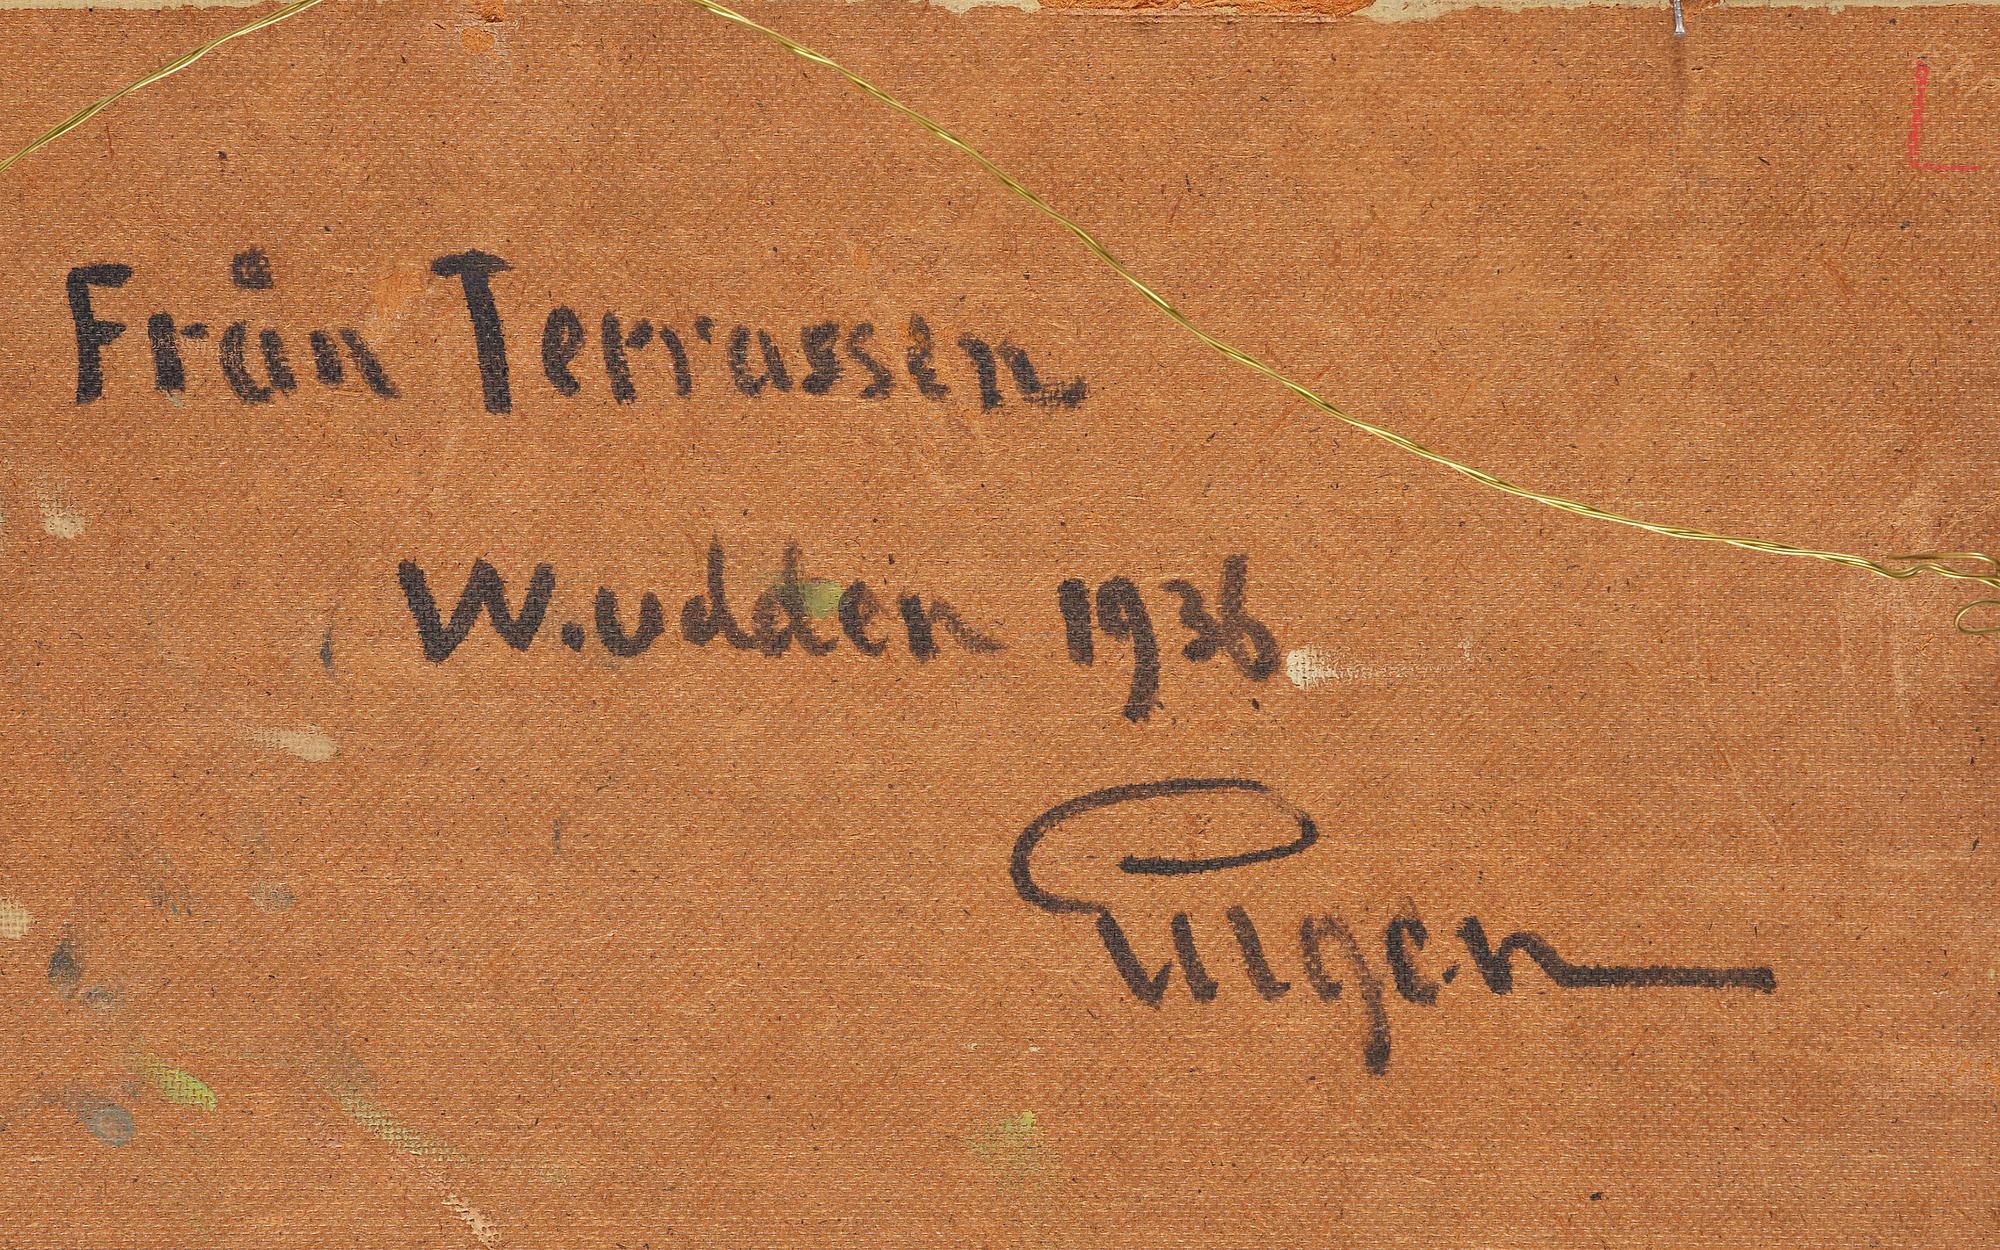 Från Terrassen
W.udden 1938
Eugen